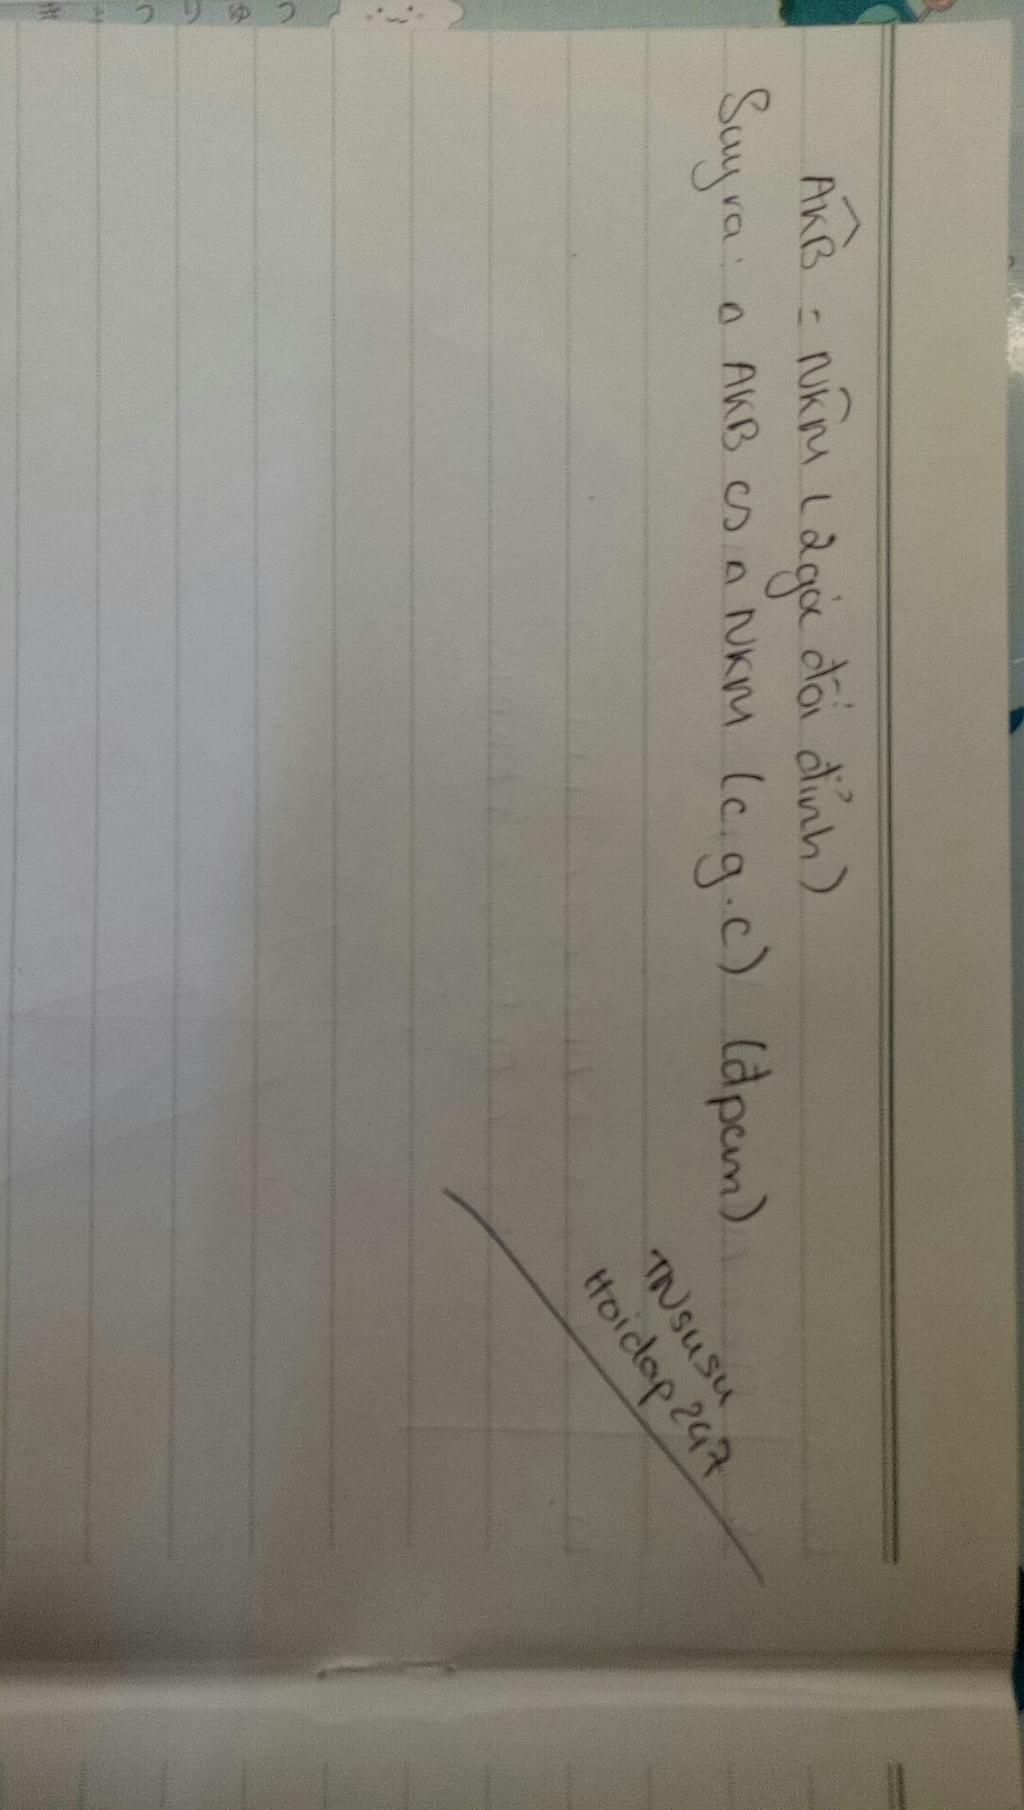 AKB̂ = NKM̂ (2 góc đối đỉnh)
Suy ra: Δ AKB ∽ Δ NKM (c.g.c) (đpcm)
TNsusu
Hoidap247